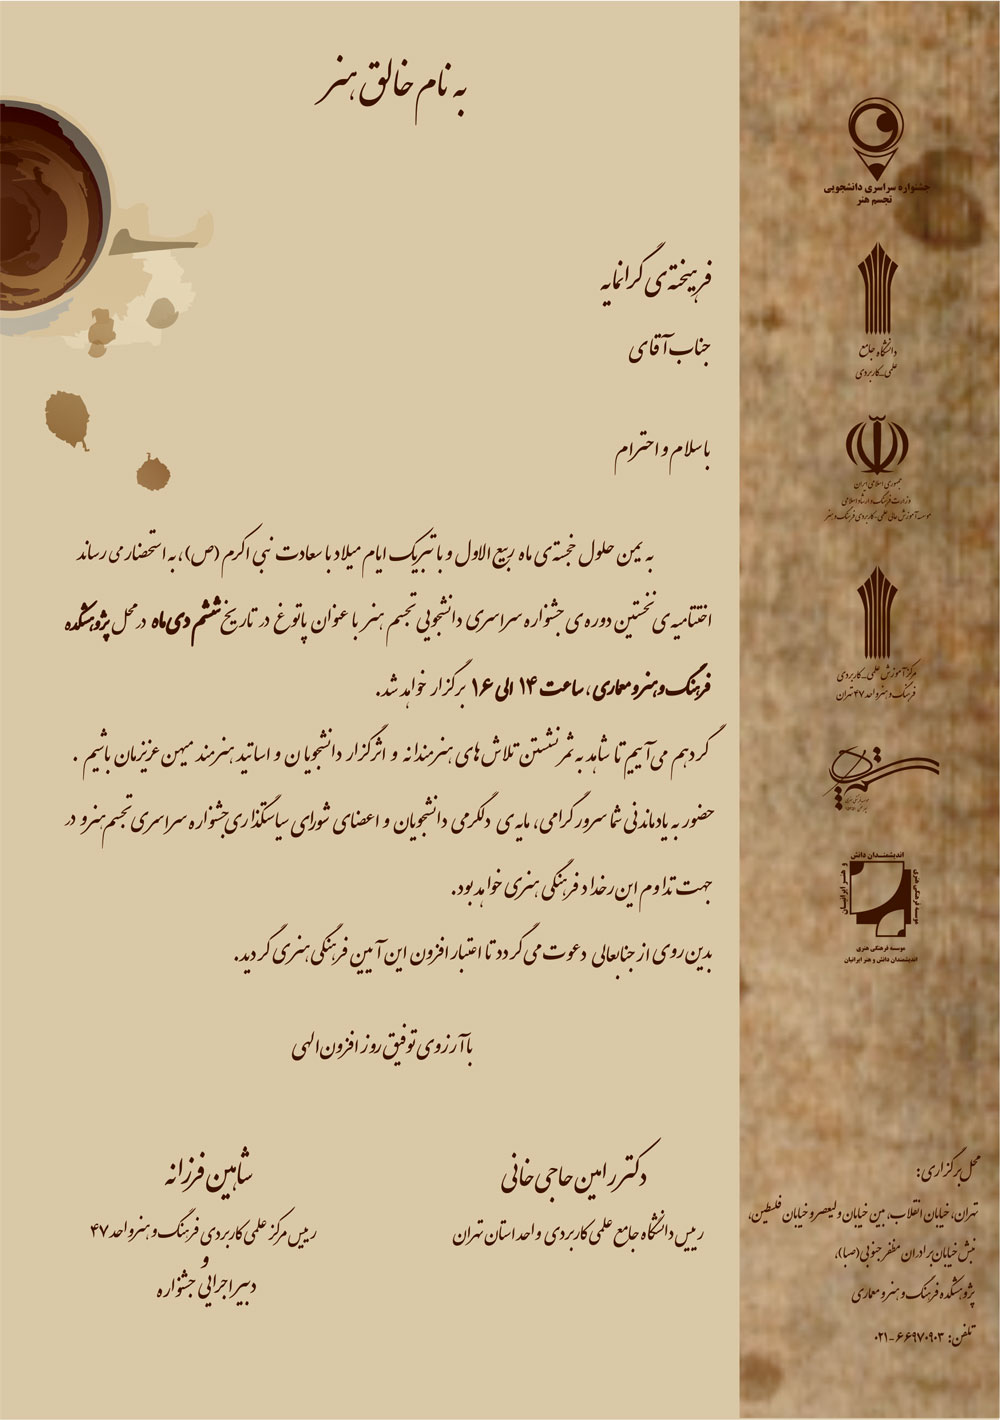 به نام خالق هنر
فرهیخته‌ی گرانمایه
جناب آقای
با سلام و احترام
به یمن حلول خجسته‌ی ماه ربیع الاول و با تبریک ایام میلاد با سعادت نبی اکرم (ص)، به استحضار می رساند
اختتامیه‌ی نخستین دوره‌ی جشنواره سراسری دانشجویی تجسم هنر با عنوان پاتوغ در تاریخ ششم دی ماه در محل پژوهشکده
فرهنگ و هنر و معماری ، ساعت ۱۴ الی ۱۶ برگزار خواهد شد.
گرد هم می‌آییم تا شاهد به ثمر نشستن تلاش‌های هنرمندانه و اثرگزار دانشجویان و اساتید هنرمند میهن عزیزمان باشیم .
حضور به یادماندنی شما سرور گرامی، مایه‌ی دلگرمی دانشجویان و اعضای شورای سیاستگذاری جشنواره سراسری تجسم هنر و در
جهت تداوم این رخداد فرهنگی هنری خواهد بود.
بدین روی از جنابعالی دعوت می گردد تا اعتبار افزون این آیین فرهنگی هنری گردید.
با آرزوی توفیق روز افزون الهی
دکتر رامین حاجی خانی
رییس دانشگاه جامع علمی کاربردی واحد استان تهران
شاهین فرزانه
رییس مرکز علمی کاربردی فرهنگ و هنر واحد ۴۷
و
دبیر اجرایی جشنواره
جشنواره سراسری دانشجویی
تجسم هنر
دانشگاه جامع
علمی_کاربردی
جمهوری اسلامی ایران
وزارت فرهنگ و ارشاد اسلامی
موسسه آموزش عالی علمی_کاربردی فرهنگ و هنر
مرکز آموزش علمی_کاربردی
فرهنگ و هنر واحد ۴۷ تهران
اندیشمندان دانش
و هنر ایرانیان
موسسه فرهنگی هنری
موسسه فرهنگی هنری
اندیشمندان دانش و هنر ایرانیان
محل برگزاری:
تهران، خیابان انقلاب، بین خیابان ولیعصر و خیابان فلسطین،
نبش خیابان برادران مظفر جنوبی (صبا)،
پژوهشکده فرهنگ و هنر و معماری
تلفن: ۰۲۱-۶۶۹۷۰۹۰۳